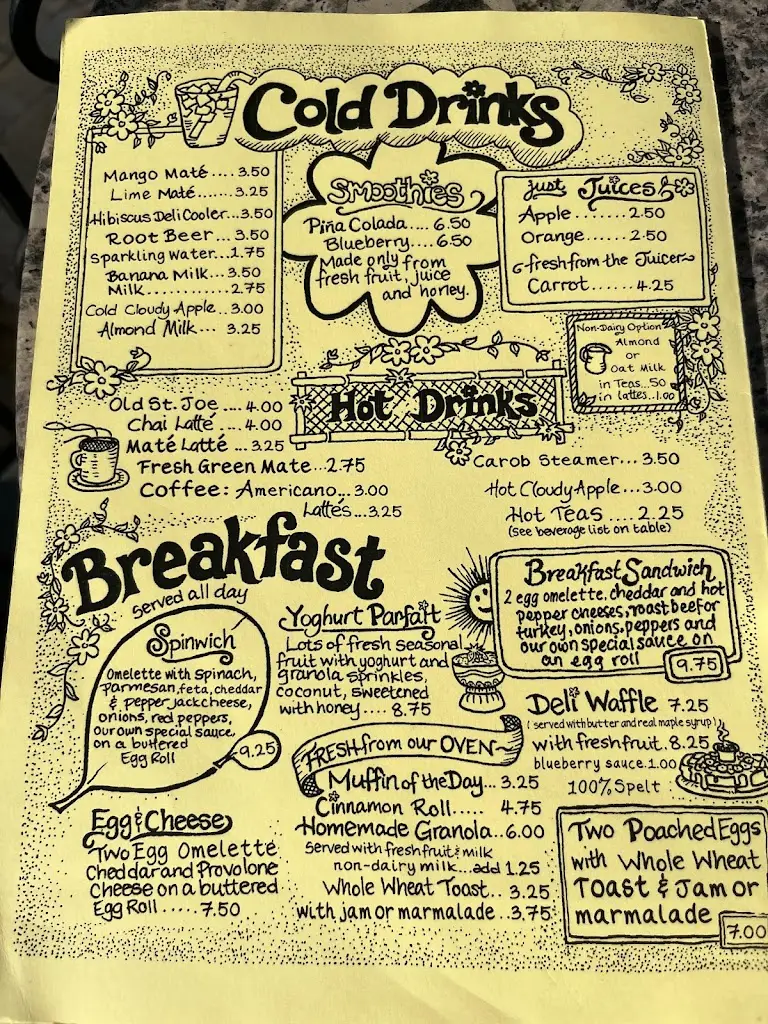 Cold Drinks
Mango Maté.... 3.50
Lime Maté...... 3.25
Hibiscus Deli Cooler...3.50
Root Beer ... 3.50
Sparkling Water...1.75
Banana Milk...3.50
Milk............ 2.75
Cold Cloudy Apple..3.00
Almond Milk... 3.25
Smoothies
Piña Colada.... 6.50
Blueberry.... 6.50
Made only from
fresh fruit, juice
and honey.
just Juices
Apple....... 2.50
Orange...... 2.50
fresh from the Juicer
Carrot...... 4.25
Non-Dairy Option
Almond
or
Oat Milk
in Teas .50
in lattes..1.00
Hot Drinks
Old St. Joe .... 4.00
Chai Latté .... 4.00
Maté Latté ... 3.25
Fresh Green Mate...2.75
Coffee: Americano... 3.00
Lattés...3.25
Carob Steamer... 3.50
Hot Cloudy Apple...3.00
Hot Teas .... 2.25
(see beverage list on table)
Breakfast
served all day
Spinwich
Omelette with spinach,
parmesan, feta, cheddar
& pepper jack cheese,
onions, red peppers,
our own special sauce,
on a buttered
Egg Roll
9.25
Yoghurt Parfait
Lots of fresh seasonal
fruit with yoghurt and
granola sprinkles,
coconut, sweetened
with honey.... 8.75
Breakfast Sandwich
2 egg omelette, cheddar and hot
pepper cheeses, roast beef or
turkey, onions, peppers and
our own special sauce on
an egg roll
9.75
Deli Waffle 7.25
(served with butter and real maple syrup)
with fresh fruit. 8.25
blueberry sauce.1.00
100% Spelt
FRESH from our OVEN
Muffin of the Day... 3.25
Cinnamon Roll..... 4.75
Homemade Granola..6.00
Served with fresh fruit & milk
non-dairy milk...add 1.25
Whole Wheat Toast.. 3.25
with jam or marmalade.. 3.75
Egg & Cheese
Two Egg Omelette
Cheddar and Provolone
Cheese on a buttered
Egg Roll ..... 7.50
Two Poached Eggs
with Whole Wheat
Toast & Jam or
marmalade
7.00